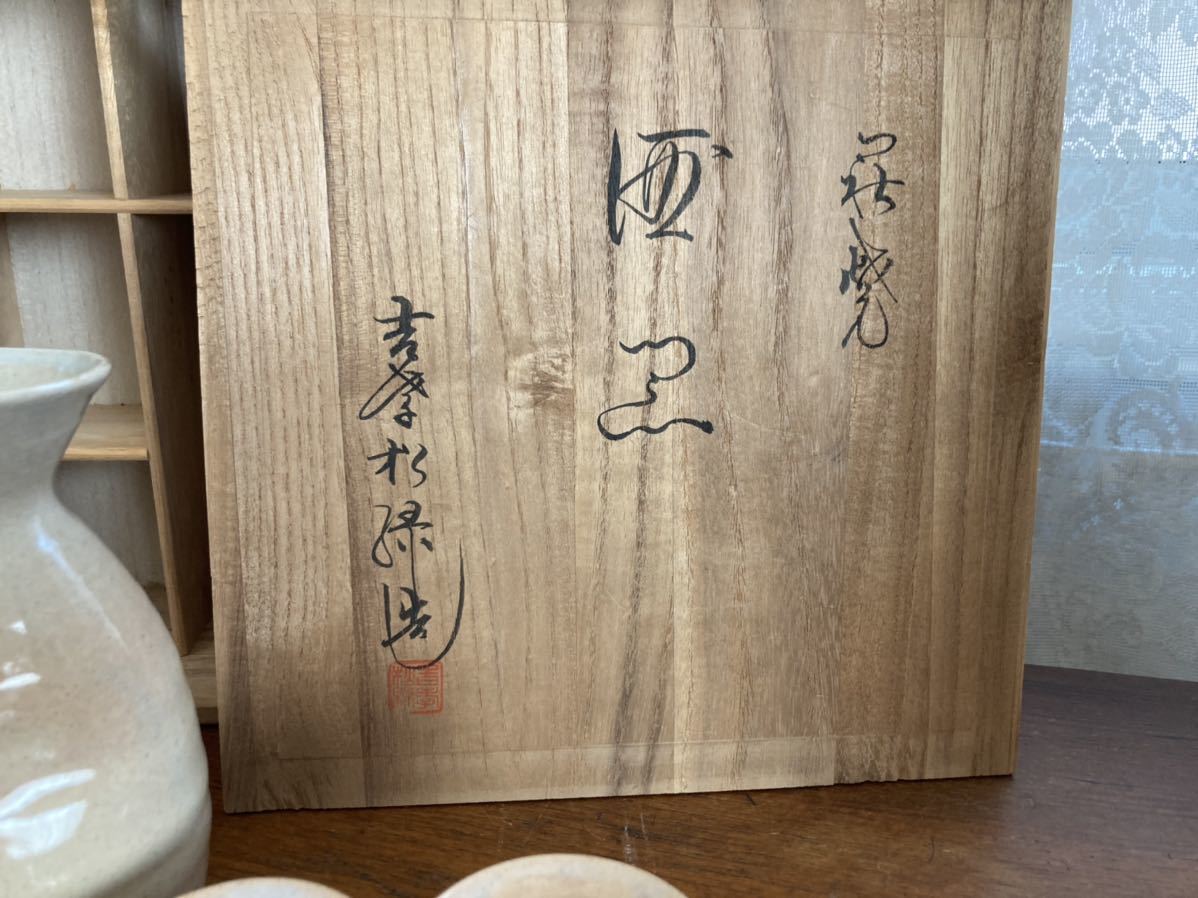 萩焼
酒器
吉孝松緑造